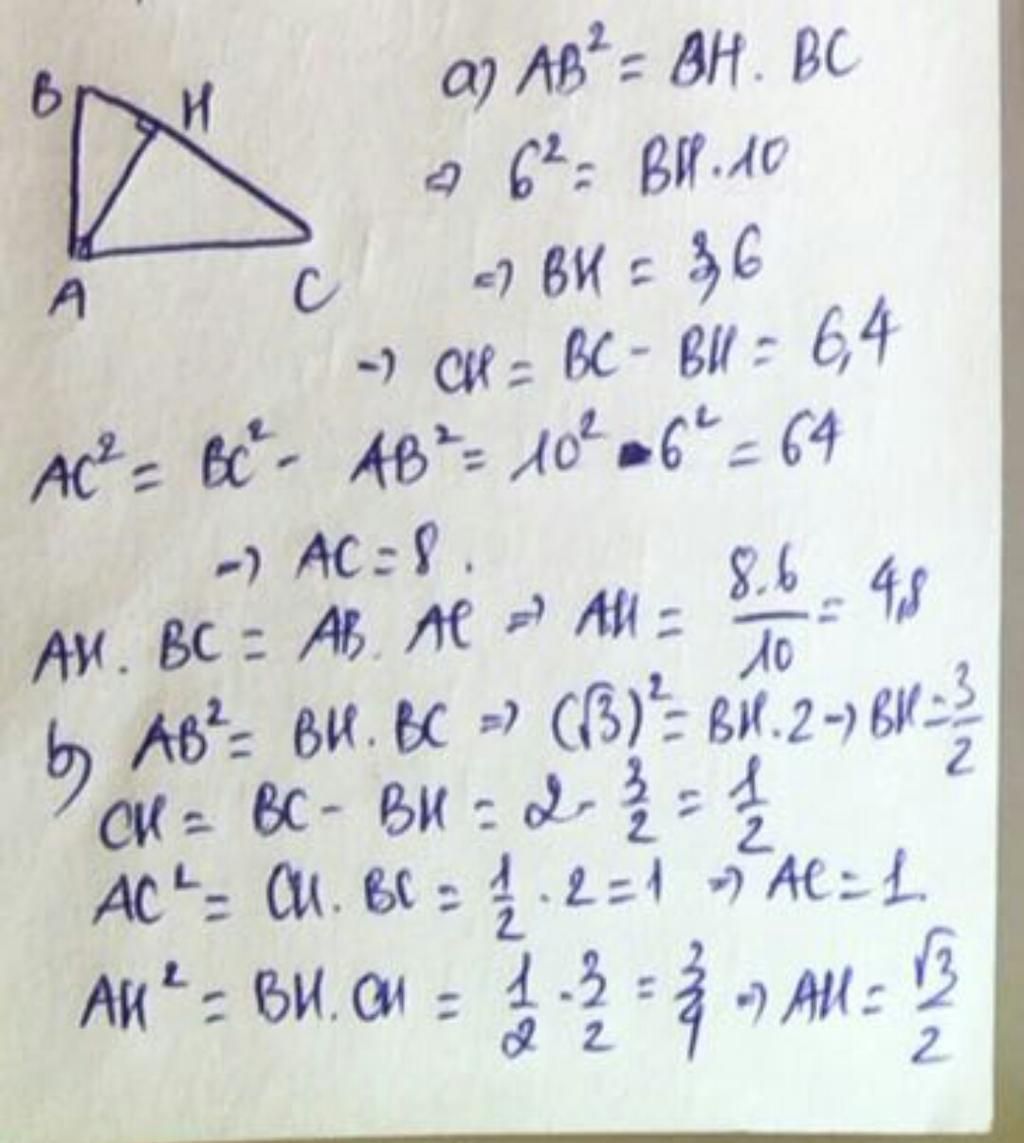 B H
A C
a) AB² = BH . BC
⇒ 6² = BH . 10
⇒ BH = 3,6
→ CH = BC - BH = 6,4
AC² = BC² - AB² = 10² - 6² = 64
→ AC = 8 .
AH . BC = AB . AC ⇒ AH = 8.6/10 = 4,8
b) AB² = BH . BC ⇒ (√3)² = BH . 2 → BH = 3/2
CH = BC - BH = 2 - 3/2 = 1/2
AC² = CH . BC = 1/2 . 2 = 1 ⇒ AC = 1.
AH² = BH . CH = 1/2 . 3/2 = 3/4 ⇒ AH = √3/2